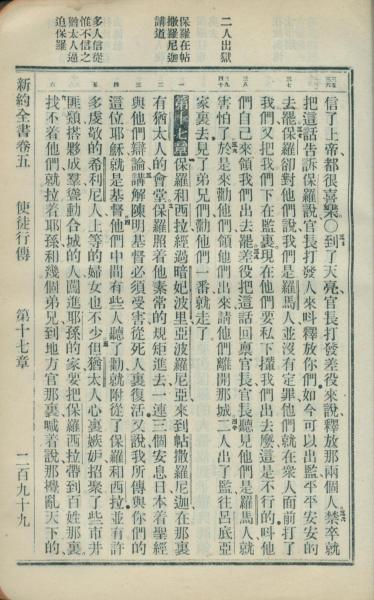 二人出獄
保羅在帖
撒羅尼迦
講道
多人信從
惟不信之
猶太人逼
迫保羅
信了上帝、都很喜樂○到了天亮官長打發差役來說釋放那兩個人禁卒就
把這話告訴保羅說官長打發人來呌釋放你們如今可以出監平平安安的
去罷保羅卻對他們說我們是羅馬人並沒有定罪他們就在衆人面前打了
我們又把我們下在監裏現在他們要私下攆我們出去麼這是不行的呌他
們自己來領我們出去罷差役把這話回禀官長官長聽見他們是羅馬人就
害怕了於是來勸他們領他們出來請他們離開那城二人出了監往呂底亞
家裏去見了弟兄們勸他們一番就走了
第十七章 保羅和西拉經過暗妃波里亞波羅尼亞來到帖撒羅尼迦在那裏
有猶太人的會堂保羅照着他素常的規矩進去一連三個安息日本着聖經
與他們辯論講解陳明基督必須受害從死人裏復活又說我所傳與你們的
這位耶穌就是基督他們中間有些人聽了勸就附從了保羅和西拉並有許
多虔敬的希利尼人上等的婦女也不少但猶太人心裏嫉妒招聚了些市井
匪類搭夥成羣聳動合城的人闖進耶孫的家要把保羅西拉帶到百姓那裏
找不着他們就拉着耶孫和幾個弟兄到地方官那裏喊着說那攪亂天下的
新約全書卷五 使徒行傳 第十七章 二百九十九